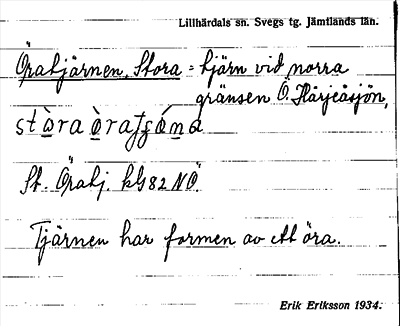 Lillhärdals sn. Svegs tg. Jämtlands län.
Öratjärnen, Stora = tjärn vid norra
gränsen Ö. Härjeåsjön,
St. Öratj. kG82 NÖ.
Tjärnen har formen av ett öra.
Erik Eriksson 1934.